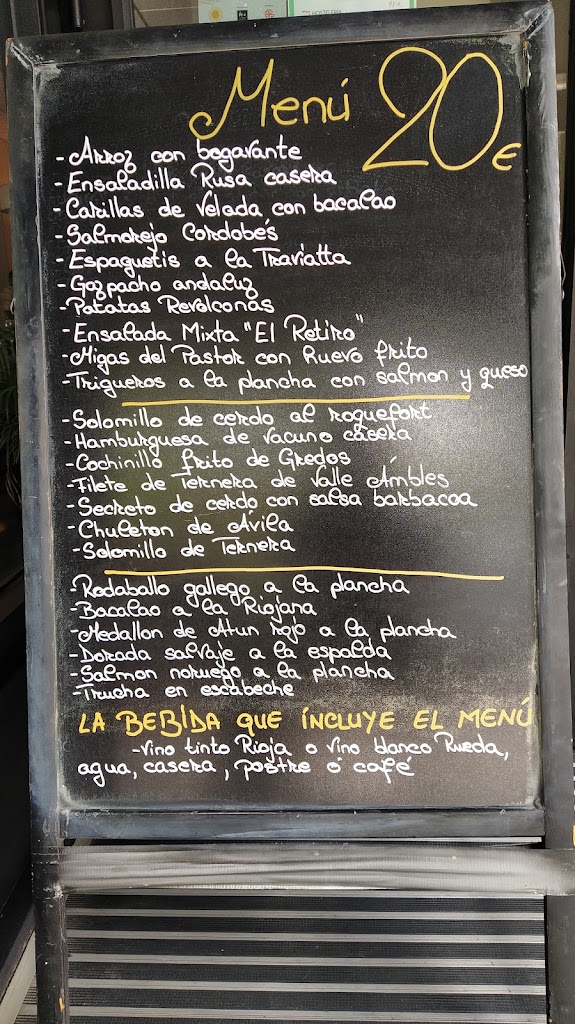 HOSTELERÍA
Menú 20€
-Arroz con bogavante
-Ensaladilla Rusa casera
-Carillas de Velada con bacalao
-Salmorejo Cordobés
-Espaguetis a la Traviatta
-Gazpacho andaluz
-Patatas Revolconas
-Ensalada Mixta "El Retiro"
-Migas del Pastor con huevo frito
-Trigueros a la plancha con salmon y queso
-Solomillo de cerdo al roquefort
-Hamburguesa de vacuno casera
-Cochinillo frito de Gredos
-Filete de Ternera de Valle Ámbles
-Secreto de cerdo con salsa barbacoa
-Chuleton de Avila
-Solomillo de Ternera
-Rodaballo gallego a la plancha
-Bacalao a la Riojana
-Medallon de Atun rojo a la plancha
-Dorada salvaje a la espalda
-Salmon noruego a la plancha
-Trucha en escabeche
LA BEBIDA QUE ÍNCLUYE EL MENÚ
-vino tinto Rioja o vino blanco Rueda,
agua, casera, postre ó café